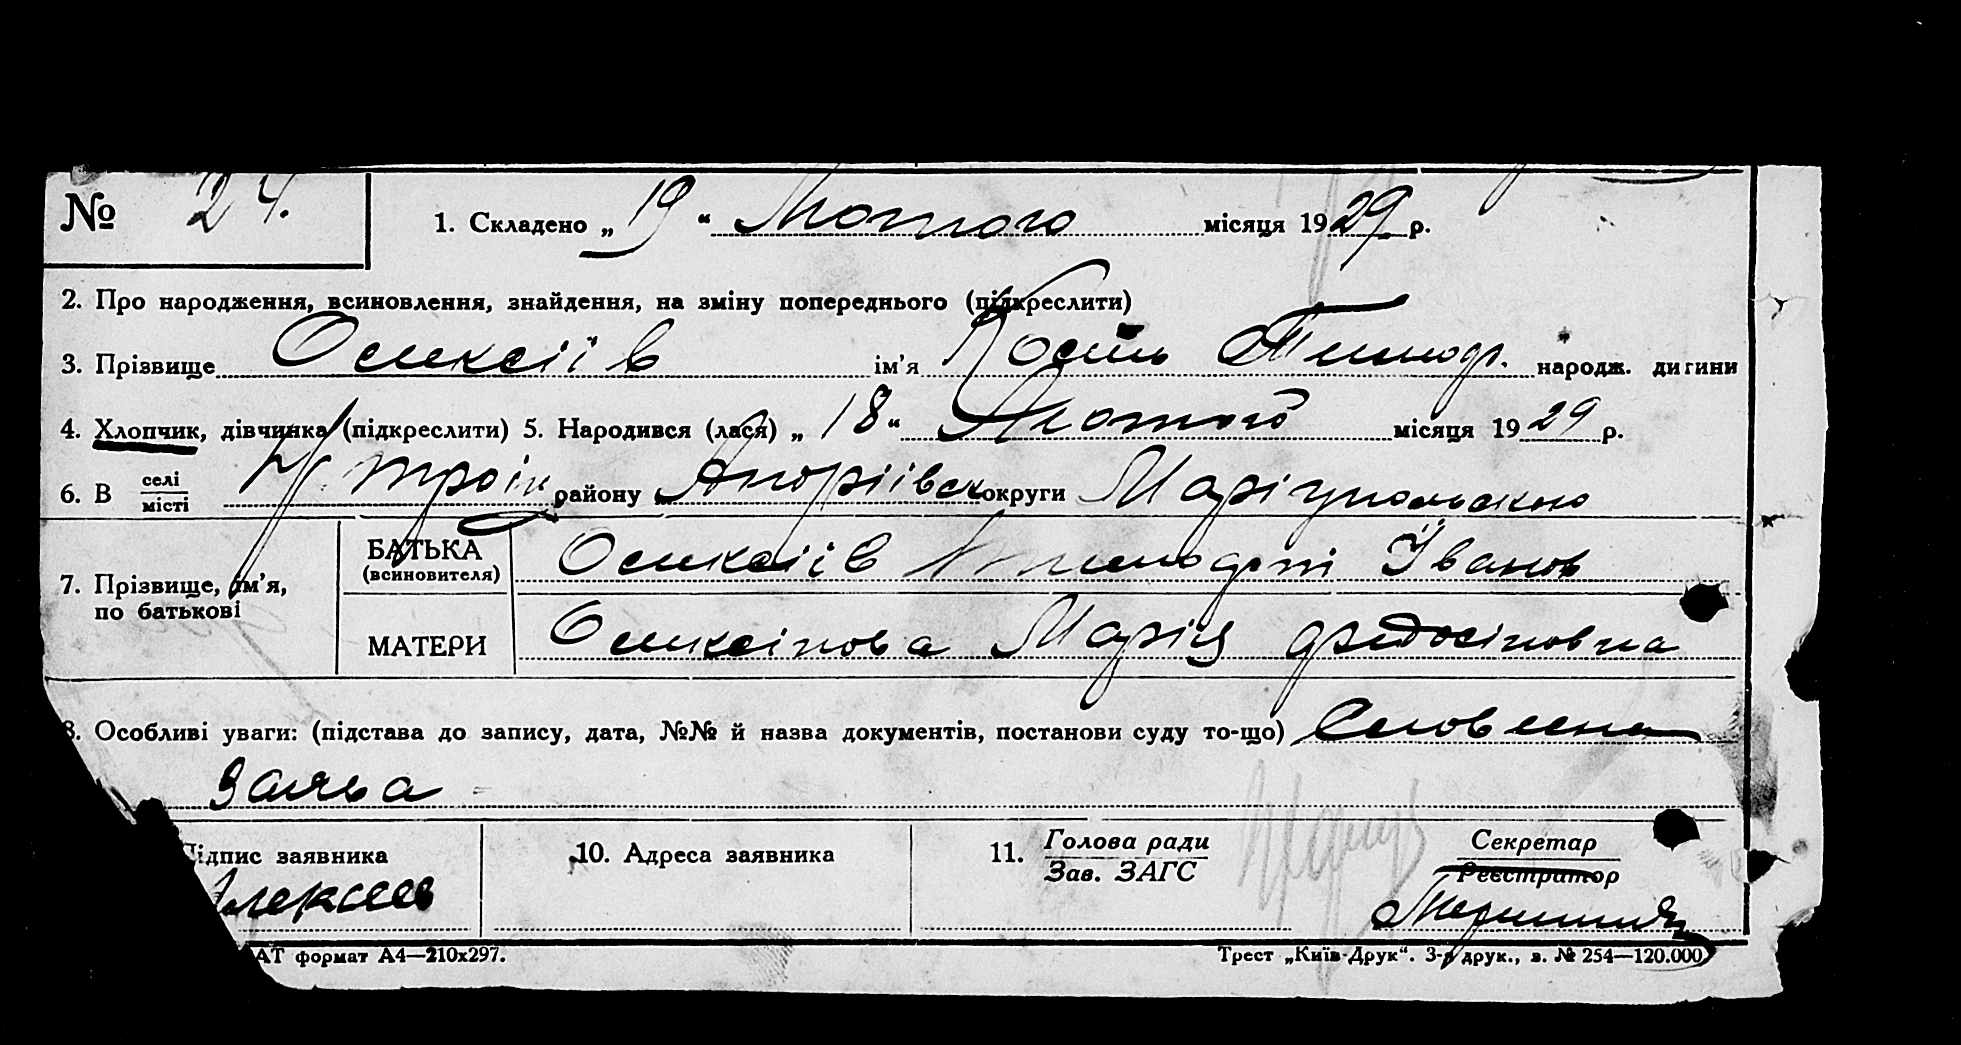 № 24.
1. Складено „ 19 “ Лютого місяця 1929 р.
2. Про народження, всиновлення, знайдення, на зміну попереднього (підкреслити)
3. Прізвище Олексіїв ім’я Кость Тимоф. народж. дитини
4. Хлопчик, дівчинка (підкреслити) 5. Народився (лася) „ 18 “ Лютого місяця 1929 р.
6. В селі місті району Андріївськ округи Маріупольською
7. Прізвище, ім’я, по батькові
БАТЬКА (всиновителя) Олексіїв Тимофій Іванов
МАТЕРИ Олексіїнова Марія Федосіповна
8. Особливі уваги: (підстава до запису, дата, №№ й назва документів, постанови суду то-що) Словесна
заява
Підпис заявника
Алексеев
10. Адреса заявника
11. Голова ради
Зав. ЗАГС
Секретар
Реєстратор
АТ формат А4—210х297.
Трест „Київ-Друк“. 3-я друк., з. № 254—120.000